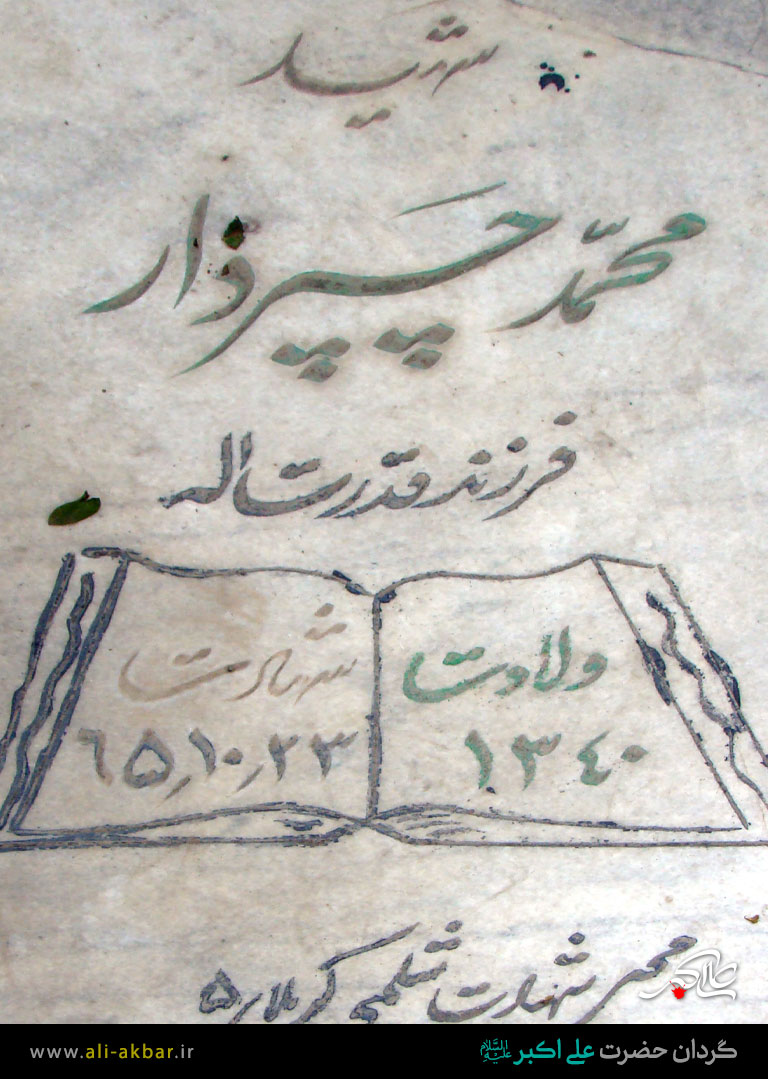 شهید
محمّد چَپَرذار
فرزند قدرت اله
ولادت
۱۳۴۰
شهادت
۶۵٫۱۰٫۲۳
محل شهادت شلمچه کربلای ۵
علی اکبر
گردان حضرت علی اکبر علیه‌السلام
www.ali-akbar.ir